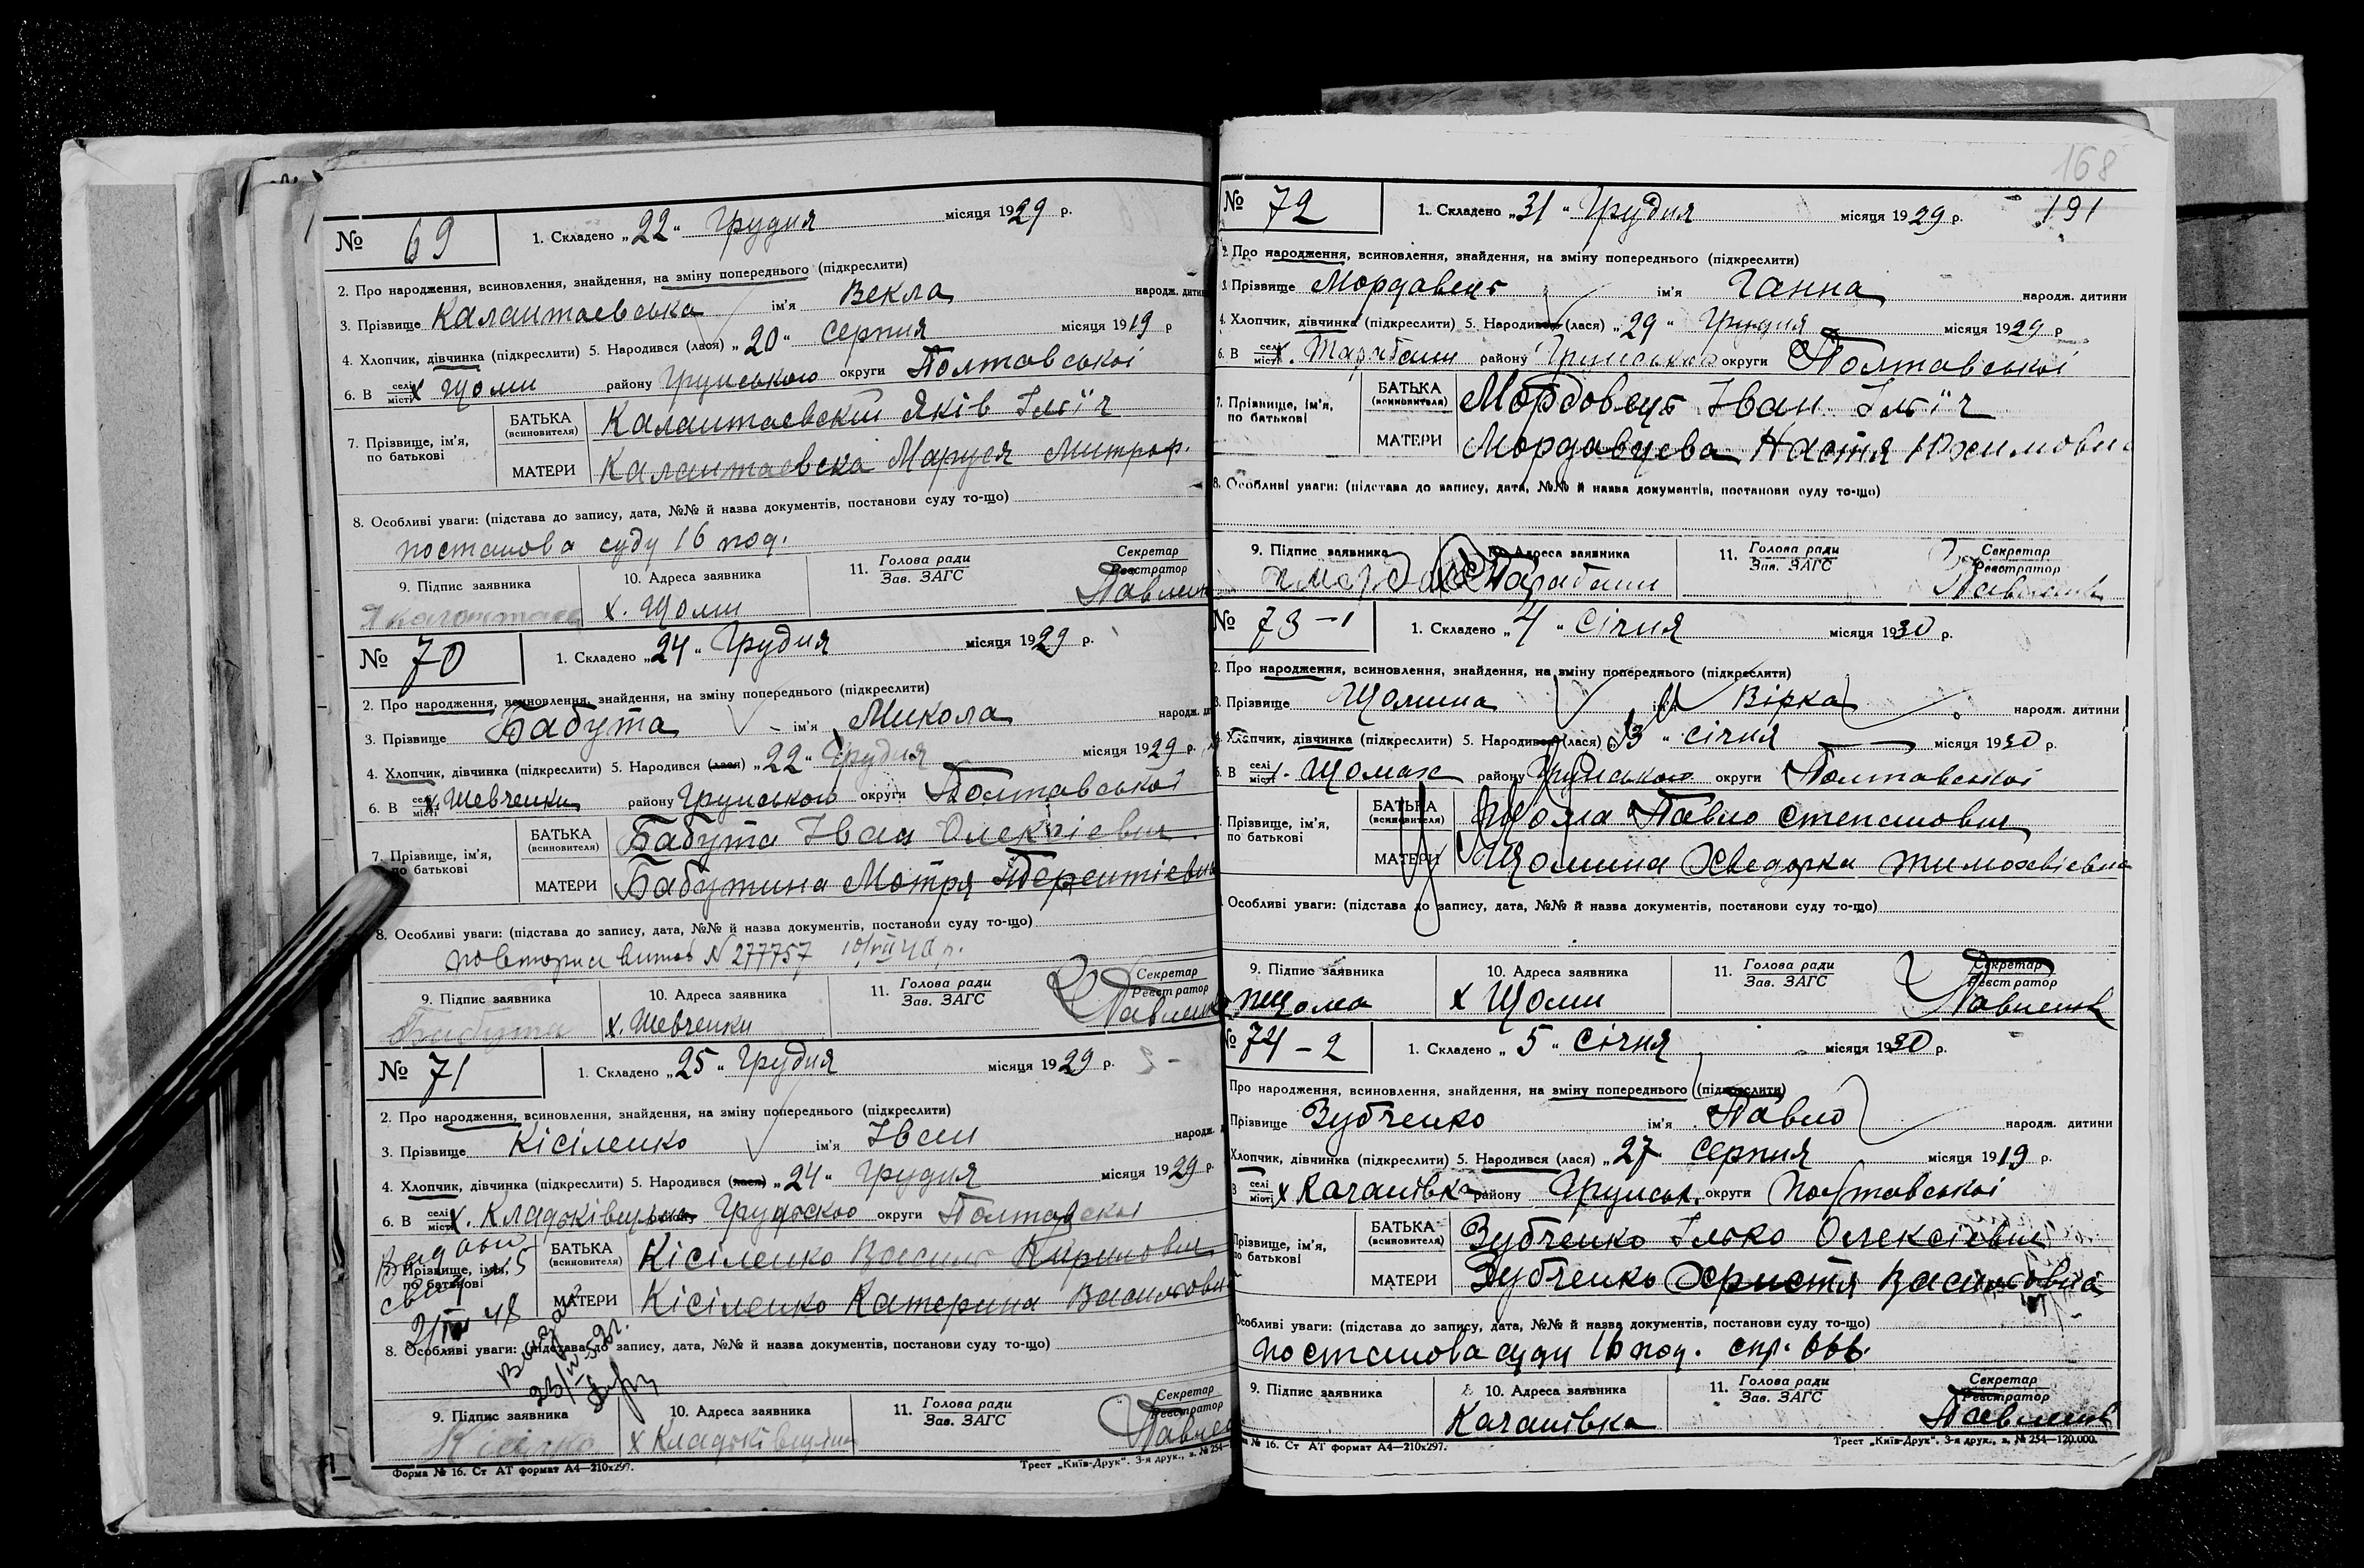 № 69
1. Складено „22“ Грудня місяця 1929 р.
2. Про народження, всиновлення, знайдення, на зміну попереднього (підкреслити)
3. Прізвище Калантаєвська ім'я Векла народж. дитини
4. Хлопчик, дівчинка (підкреслити) 5. Народився (лася) „20“ серпня місяця 1919 р
6. В селі місті х Щоми району Грунського округи Полтавської
7. Прізвище, ім'я, по батькові
БАТЬКА (всиновителя) Калантаєвскій Яків Ілліч
МАТЕРИ Калантаєвска Маруся Митроф.
8. Особливі уваги: (підстава до запису, дата, №№ й назва документів, постанови суду то-що)
постанова суду 16 под.
9. Підпис заявника 10. Адреса заявника 11. Голова ради Зав. ЗАГС Секретар Реєстратор
х. Щоми
№ 70
1. Складено „24“ Грудня місяця 1929 р.
2. Про народження, всиновлення, знайдення, на зміну попереднього (підкреслити)
3. Прізвище Бабута ім'я Микола народж.
4. Хлопчик, дівчинка (підкреслити) 5. Народився (лася) „22“ Грудня місяця 1929 р.
6. В селі місті х. Шевченки району Грунського округи Полтавської
7. Прізвище, ім'я, по батькові
БАТЬКА (всиновителя) Бабута Іван Олексієвич
МАТЕРИ Бабутина Мотря Терентієвна
8. Особливі уваги: (підстава до запису, дата, №№ й назва документів, постанови суду то-що)
N 277757
9. Підпис заявника 10. Адреса заявника 11. Голова ради Зав. ЗАГС Секретар Реєстратор
Бабута х. Шевченки
№ 71
1. Складено „25“ Грудня місяця 1929 р.
2. Про народження, всиновлення, знайдення, на зміну попереднього (підкреслити)
3. Прізвище Кісіленко ім'я Іван народж.
4. Хлопчик, дівчинка (підкреслити) 5. Народився (лася) „24“ Грудня місяця 1929 р.
6. В селі місті х. району округи
7. Прізвище, ім'я, по батькові
БАТЬКА (всиновителя) Кісіленко Василь Кирилович
МАТЕРИ Кісіленко Катерина
8. Особливі уваги: (підстава до запису, дата, №№ й назва документів, постанови суду то-що)
9. Підпис заявника 10. Адреса заявника 11. Голова ради Зав. ЗАГС Секретар Реєстратор
Форма № 16. Ст АТ формат А4—210х297. Трест „Київ-Друк“. 3-я друк., з. № 254—
168
191
№ 72
1. Складено „31“ Грудня місяця 1929 р.
2. Про народження, всиновлення, знайдення, на зміну попереднього (підкреслити)
3. Прізвище Мордавець ім'я Ганна народж. дитини
4. Хлопчик, дівчинка (підкреслити) 5. Народився (лася) „29“ Грудня місяця 1929 р
6. В селі місті х. Тарабани району Грунського округи Полтавської
7. Прізвище, ім'я, по батькові
БАТЬКА (всиновителя) Мордовець Іван Ілліч
МАТЕРИ Мордавцева Настя
8. Особливі уваги: (підстава до запису, дата, №№ й назва документів, постанови суду то-що)
9. Підпис заявника 10. Адреса заявника 11. Голова ради Зав. ЗАГС Секретар Реєстратор
Тарабани
№ 73 – 1
1. Складено „4“ Січня місяця 1930 р.
2. Про народження, всиновлення, знайдення, на зміну попереднього (підкреслити)
3. Прізвище Щомина ім'я Вірка народж. дитини
4. Хлопчик, дівчинка (підкреслити) 5. Народився (лася) „3“ січня місяця 1930 р.
6. В селі місті Щомах району Грунського округи Полтавської
Прізвище, ім'я, по батькові
БАТЬКА (всиновителя) Щома Павло Степанович
МАТЕРИ Щомина Хведорка Тимохвієвна
Особливі уваги: (підстава до запису, дата, №№ й назва документів, постанови суду то-що)
9. Підпис заявника 10. Адреса заявника 11. Голова ради Зав. ЗАГС Секретар Реєстратор
ПЩома х Щоми Павленко
№ 74 – 2
1. Складено „5“ Січня місяця 1930 р.
Про народження, всиновлення, знайдення, на зміну попереднього (підкреслити)
Прізвище Зубченко ім'я Павло народж. дитини
Хлопчик, дівчинка (підкреслити) 5. Народився (лася) „27 Серпня місяця 1919 р.
В селі місті х Качанівка району Грунськ. округи Полтавської
Прізвище, ім'я, по батькові
БАТЬКА (всиновителя) Зубченко Ілько Олексієвич
МАТЕРИ Зубченко Христя Василовна
Особливі уваги: (підстава до запису, дата, №№ й назва документів, постанови суду то-що)
постанова суду 16 под. спр. 666.
9. Підпис заявника 10. Адреса заявника 11. Голова ради Зав. ЗАГС Секретар Реєстратор
Качанівка Павленко
№ 16. Ст АТ формат А4—210х297. Трест „Київ-Друк“. 3-я друк., з. № 254—120.000.